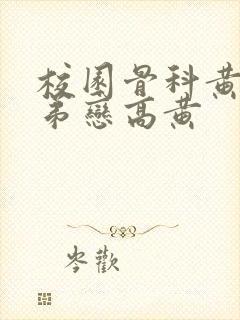 校園骨科黃
弟戀高黃
岑歡